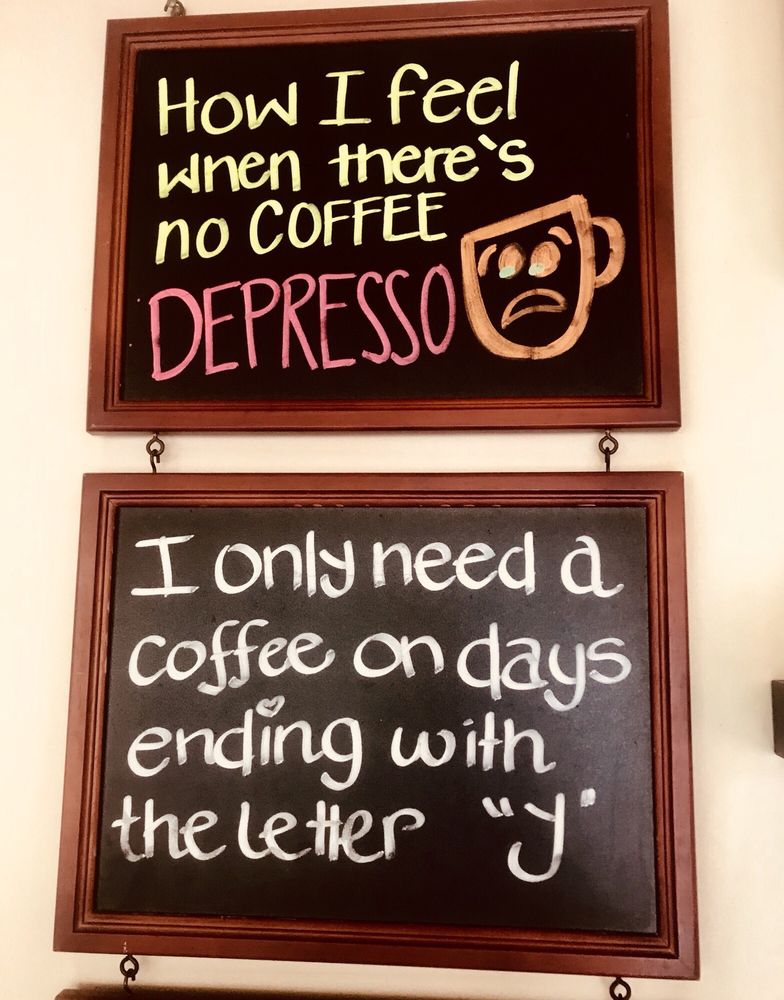 How I feel
when there's
no COFFEE
DEPRESSO
I only need a
coffee on days
ending with
the letter "y"